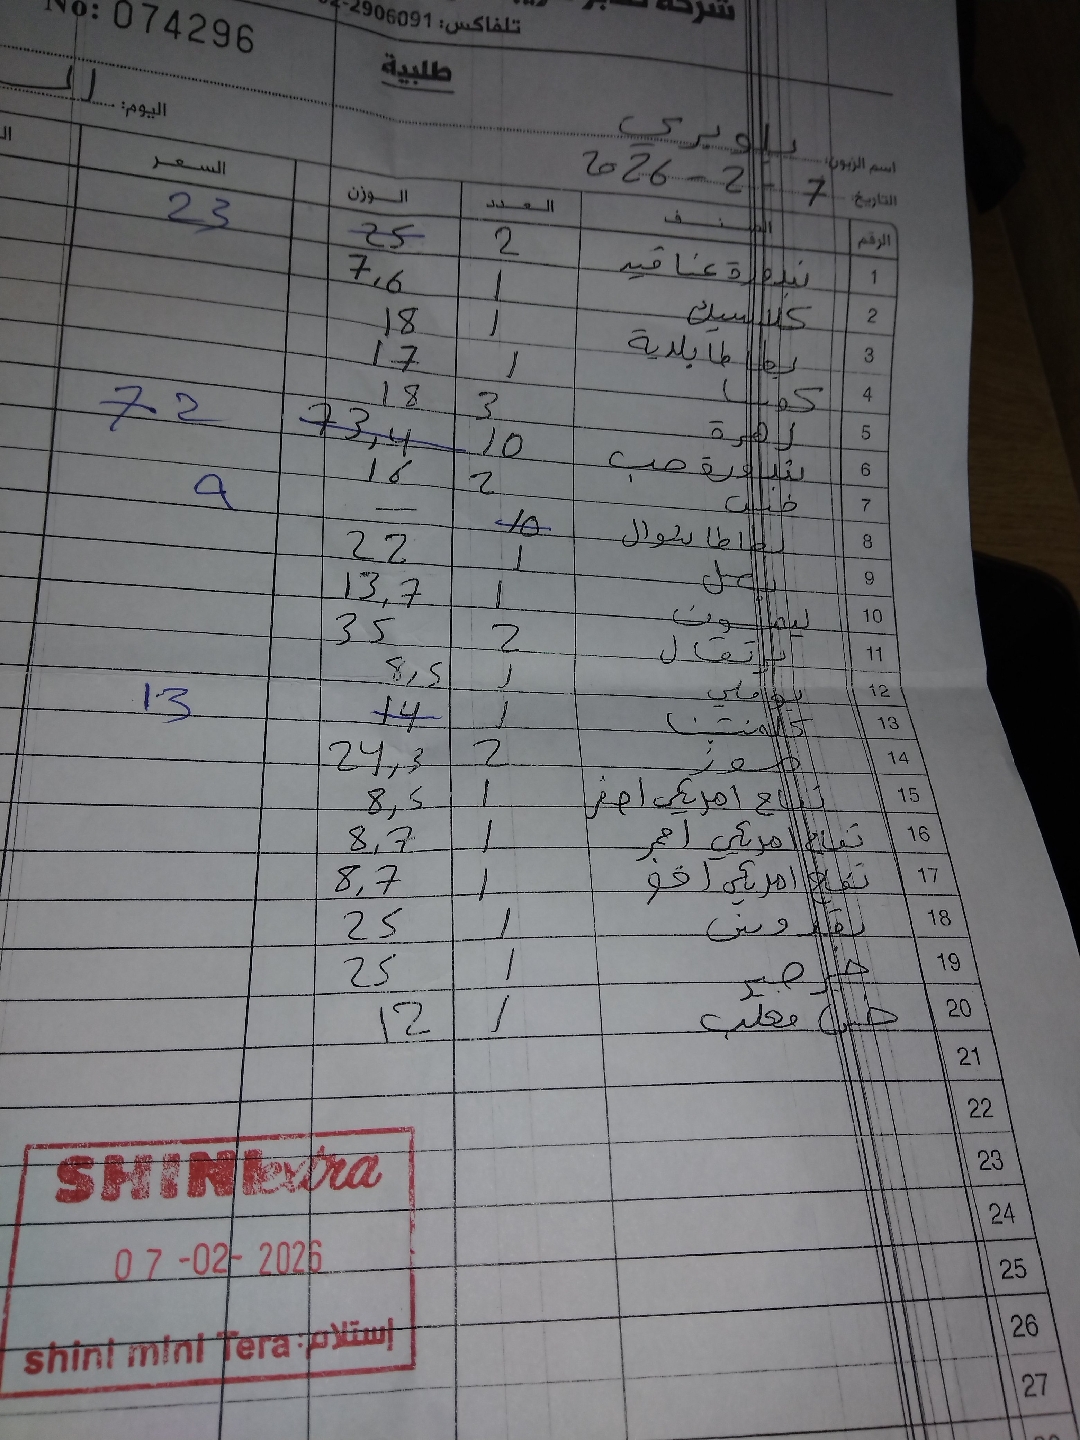 شركة
تلفاكس: 02-2906091
No: 074296
طلبية
اليوم:
اسم الزبون:
التاريخ: 7 - 2 - 2026
الرقم الصنف العدد الوزن السعر
1 بندورة عناقيد 2 25 23
2 كلاسيك 1 7,6
3 بطاطا بلدية 1 18
4 كوسا 1 17
5 زهرة 3 18
6 بندورة حب 10 73,4 72
7 خس 2 16
8 بطاطا شوال 10 — 9
9 بصل 1 22
10 ليمون 1 13,7
11 برتقال 2 35
12 بوملي 1 8,5
13 كلمنتينا 1 14 13
14 موز 2 24,3
15 تفاح امريكي اصفر 1 8,5
16 تفاح امريكي احمر 1 8,7
17 تفاح امريكي اخضر 1 8,7
18 بقدونس 1 25
19 1 25
20 خس معلب 1 12
21
22
23
24
25
26
27
SHINI extra
07-02-2026
shini mini Tera إستلام: